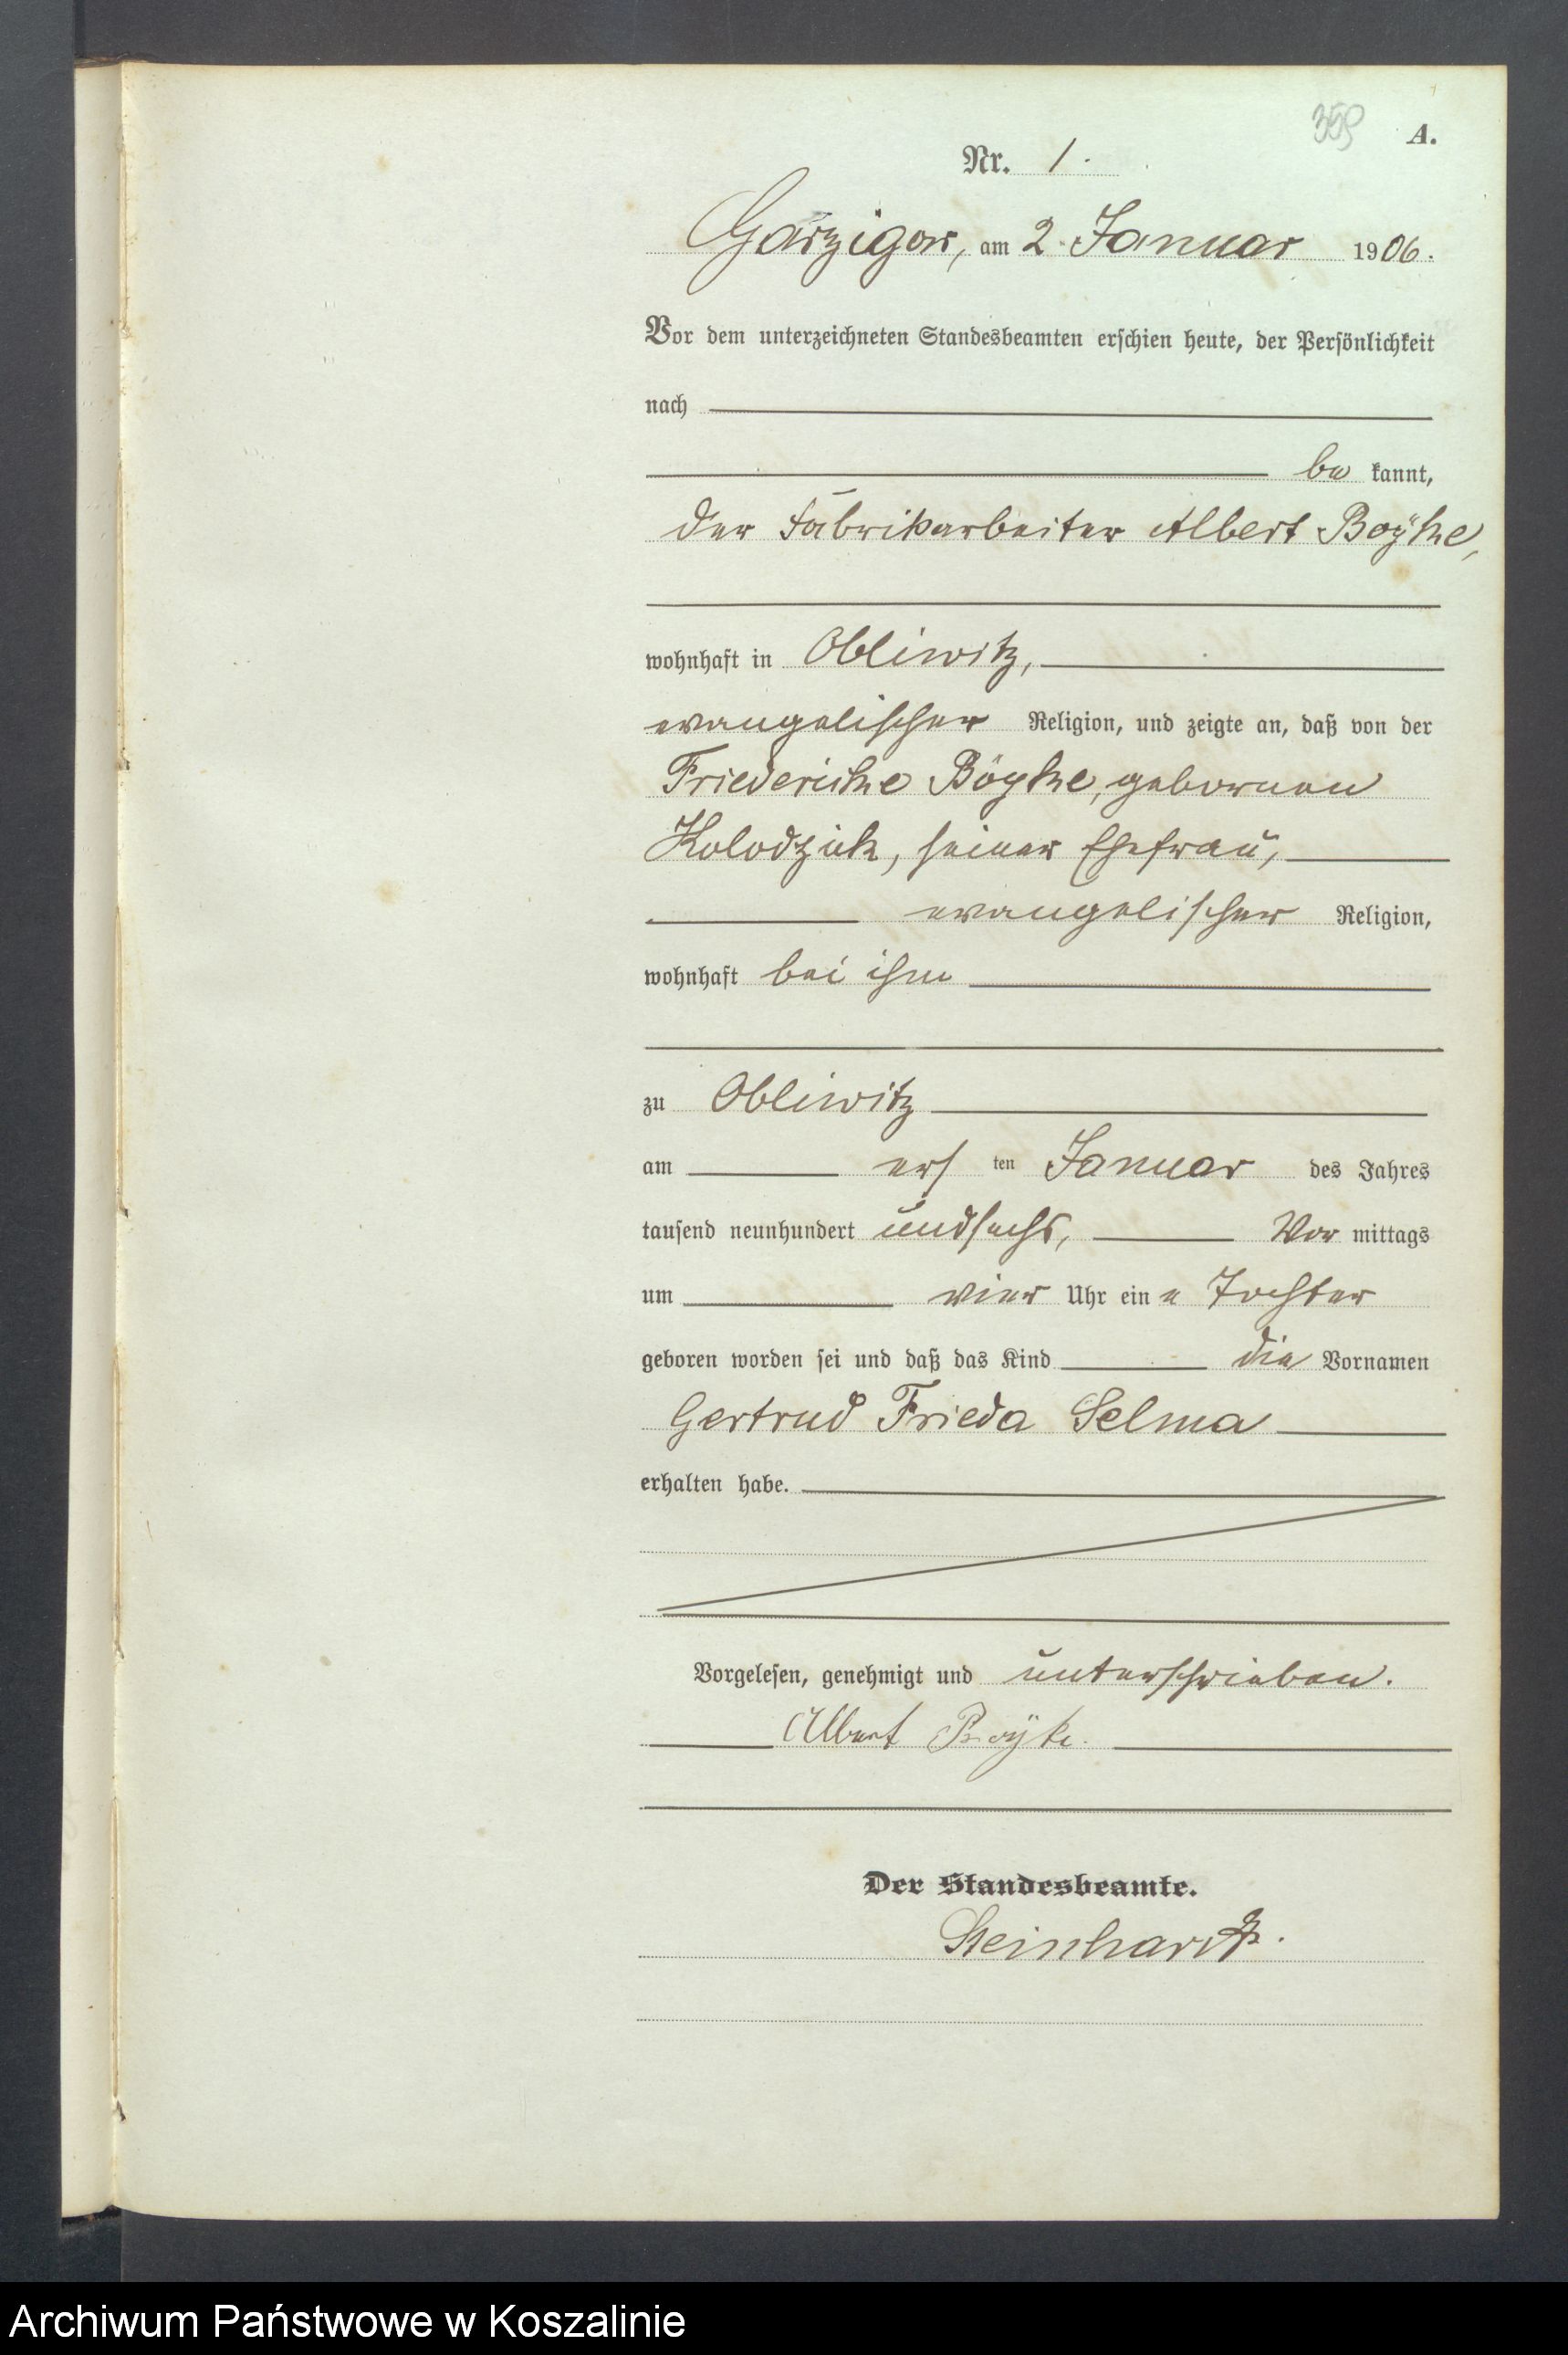 359
A.
Nr. 1.
Garzigar, am 2. Januar 1906.
Vor dem unterzeichneten Standesbeamten erschien heute, der Persönlichkeit
nach
be kannt,
der Fabrikarbeiter Albert Boÿke,
wohnhaft in Obliwitz,
evangelischer Religion, und zeigte an, daß von der
Friederike Böyke, gebornen
Kolodzik, seiner Ehefrau,
evangelischer Religion,
wohnhaft bei ihm
zu Obliwitz
am ers ten Januar des Jahres
tausend neunhundert undsechs, Vor mittags
um vier Uhr ein e Tochter
geboren worden sei und daß das Kind die Vornamen
Gertrud Frieda Selma
erhalten habe.
Vorgelesen, genehmigt und unterschrieben.
Albert Boÿke.
Der Standesbeamte.
Archiwum Państwowe w Koszalinie